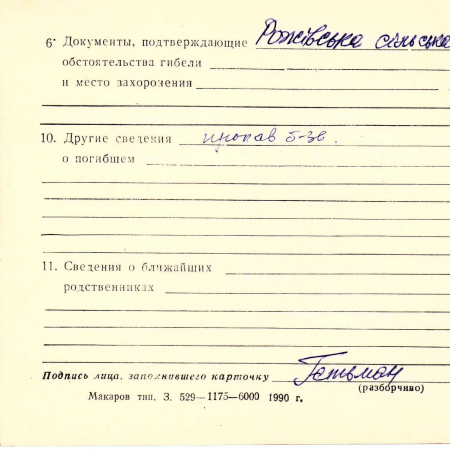 6· Документы, подтверждающие Рожівська сільська
обстоятельства гибели
и место захоронения
10. Другие сведения пропав б-зв.
о погибшем
11. Сведения о ближайших
родственниках
Подпись лица, заполнившего карточку Гетьман
(разборчиво)
Макаров тип. З. 529—1175—6000 1990 г.